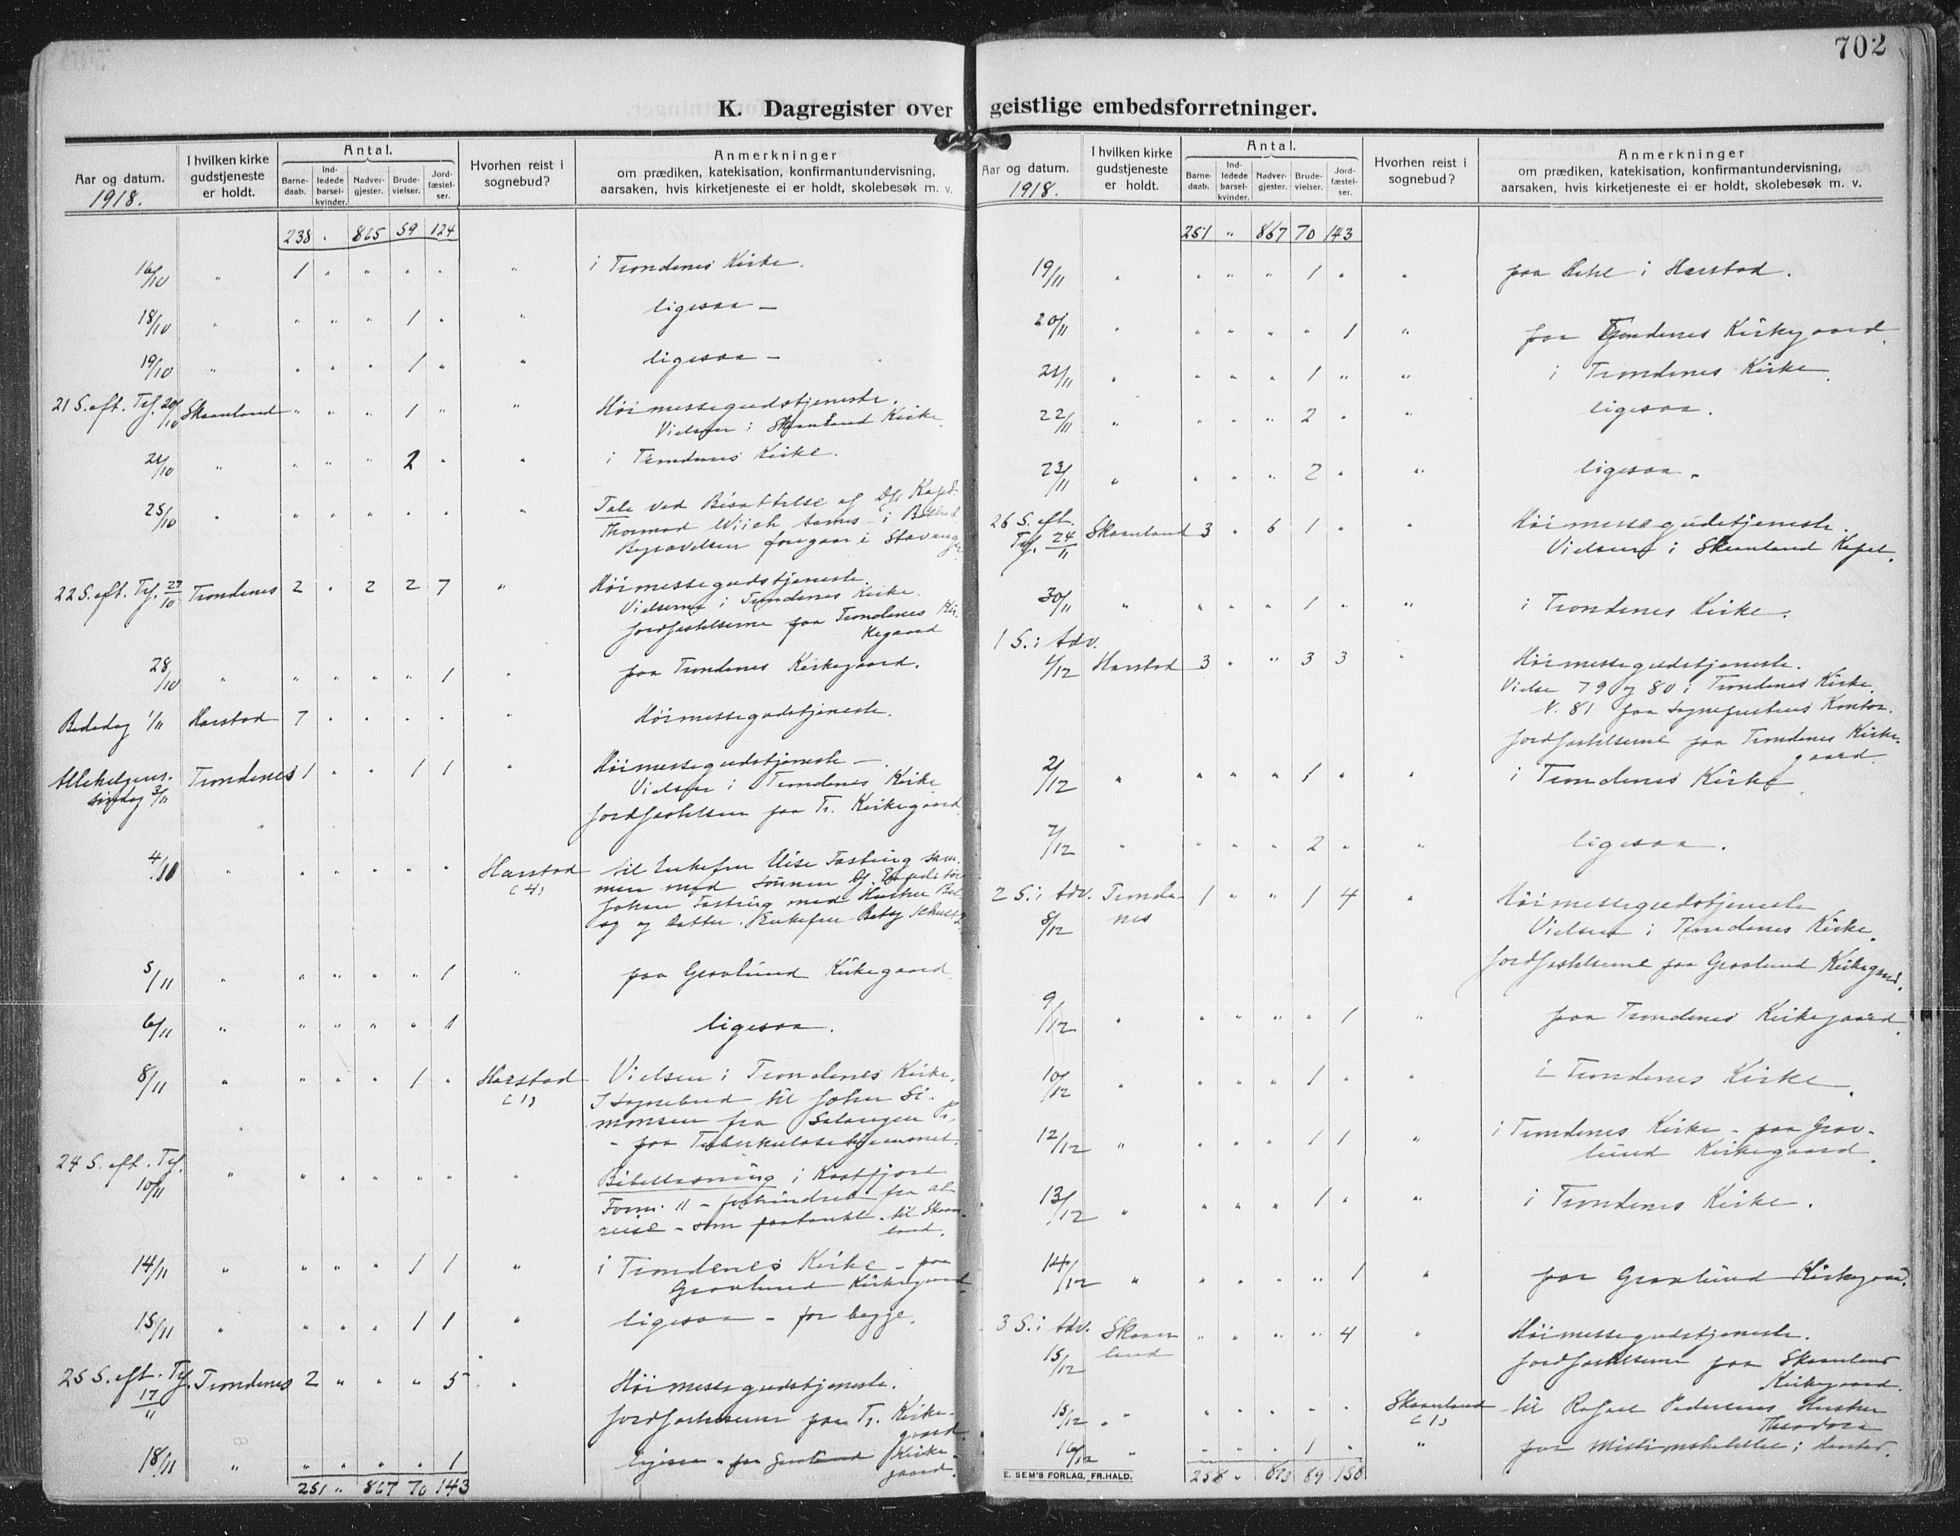 702
K. Dagregister over geistlige embedsforretninger.
Aar og datum.
1918.
I hvilken kirke
gudstjeneste
er holdt.
Antal.
Barne-
daab.
Ind-
ledede
barsel-
kvinder.
Nadver-
gjester.
Brude-
vielser.
Jord-
fæstel-
ser.
Hvorhen reist i
sognebud?
Anmerkninger
om prædiken, katekisation, konfirmantundervisning,
aarsaken, hvis kirketjeneste ei er holdt, skolebesøk m. v.
238 " 865 59 124
16/10 " 1 " " " " " i Trondenes Kirke.
18/10 " " " " 1 " " ligesaa —
19/10 " " " " 1 " " ligesaa —
21 S. eft. Tref. 20/10 Skaanland " " " 1 " " Høimessegudstjeneste.
Vielsen i Skaanland Kirke.
21/10 " " " " 2 " " i Trondenes Kirke.
25/10 " " " " " " " Tale ved Bisættelse af
Begravelsen foregaar i Stavanger
22 S. eft. Tref. 27/10 Trondenes 2 " 2 2 7 " Høimessegudstjeneste.
Vielserne i Trondenes Kirke.
Jordfæstelserne paa Trondenes Kir-
kegaard
28/10 " " " " " 1 " paa Trondenes Kirkegaard.
Bededag 1/11 Harstad 7 " " " " " Høimessegudstjeneste.
Allehelgens-
søndag 3/11 Trondenes 1 " " 1 1 " Høimessegudstjeneste —.
Vielsen i Trondenes Kirke
Jordfæstelsen paa Tr. Kirkegaard.
4/11 " " " " " " Harstad
(4)
til Enkefru Elise Tastrup sam-
men med Sønnen
Johan Tastrup med Hustru
og Datter. Enkefru
5/11 " " " " " 1 " paa Gravlund Kirkegaard.
6/11 " " " " " 1 " ligesaa.
8/11 " " " " 1 " Harstad
(1)
Vielsen i Trondenes Kirke.
I Sognebud til Johan Si-
monsen fra Salangen
- paa Tuberkulosehjemmet.
24 S. eft. Tref.
10/11 " " " " " " " Bibellæsning i Kasfjord
forhindret fra af-
reise - som paatænkt - til Skaan-
land.
14/11 " " " " 1 1 " i Trondenes Kirke - paa
Gravlund Kirkegaard
15/11 " " " " 1 1 " ligesaa - for begge.
25 S. eft. Tref.
17/11 Trondenes 2 " " " 5 " Høimessegudstjeneste.
Jordfæstelserne paa Tr. Kirke-
gaard.
18/11 " " " " " 1 ligesaa - paa Gravlund Kirke-
gaard.
251 " 867 70 143
Aar og datum.
1918.
I hvilken kirke
gudstjeneste
er holdt.
Antal.
Barne-
daab.
Ind-
ledede
barsel-
kvinder.
Nadver-
gjester.
Brude-
vielser.
Jord-
fæstel-
ser.
Hvorhen reist i
sognebud?
Anmerkninger
om prædiken, katekisation, konfirmantundervisning,
aarsaken, hvis kirketjeneste ei er holdt, skolebesøk m. v.
251 " 867 70 143
19/11 " " " " 1 " " paa i Harstad.
20/11 " " " " " 1 " paa Trondenes Kirkegaard.
21/11 " " " " 1 " " i Trondenes Kirke.
22/11 " " " " 2 " " ligesaa.
23/11 " " " " 2 " " ligesaa.
26 S. eft.
Tref. 24/11 Skaanland 3 " 6 1 " " Høimessegudstjeneste.
Vielsen i Skaanland Kapel.
30/11 " " " " 1 " " i Trondenes Kirke.
1 S. i Adv.
1/12 Harstad 3 " " 3 3 " Høimessegudstjeneste.
Vielse 79 og 80 i Trondenes Kirke.
N. 81 paa Sogneprestens Kontor.
Jordfæstelserne paa Trondenes Kirke-
gaard.
2/12 " " " " 1 " " i Trondenes Kirke.
7/12 " " " " 2 " " ligesaa.
2 S. i Adv.
8/12 Tronde-
nes 1 " " 1 4 " Høimessegudstjeneste
Vielsen i Trondenes Kirke.
Jordfæstelserne paa Gravlund Kirkegaard.
9/12 " " " " " 1 " paa Trondenes Kirkegaard.
10/12 " " " " 1 " " i Trondenes Kirke.
12/12 " " " " 1 1 " i Trondenes Kirke - paa Grav-
lund Kirkegaard.
13/12 " " " " 1 " " i Trondenes Kirke.
14/12 " " " " " 1 " paa Gravlund Kirkegaard.
3 S. i Adv.
15/12 Skaan-
land " " " " 4 " Høimessegudstjeneste.
Jordfæstelserne paa Skaanland
Kirkegaard.
15/12 " " " " " " Skaanland
(1)
til Rafael Pedersens Hustru
Theodora
16/12 " " " " 1 " "
E. SEM'S FORLAG, FR.HALD.
258 " 873 89 158